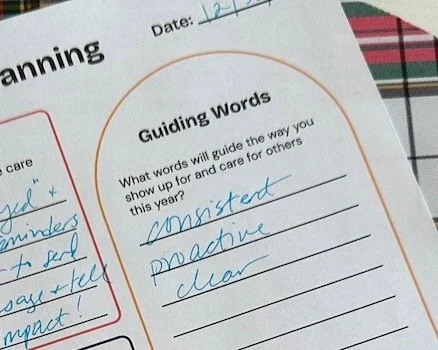 anning
Date: 12/
e care
minders
to send
sage + tell
mpact!
Guiding Words
What words will guide the way you
show up for and care for others
this year?
consistent
proactive
clear